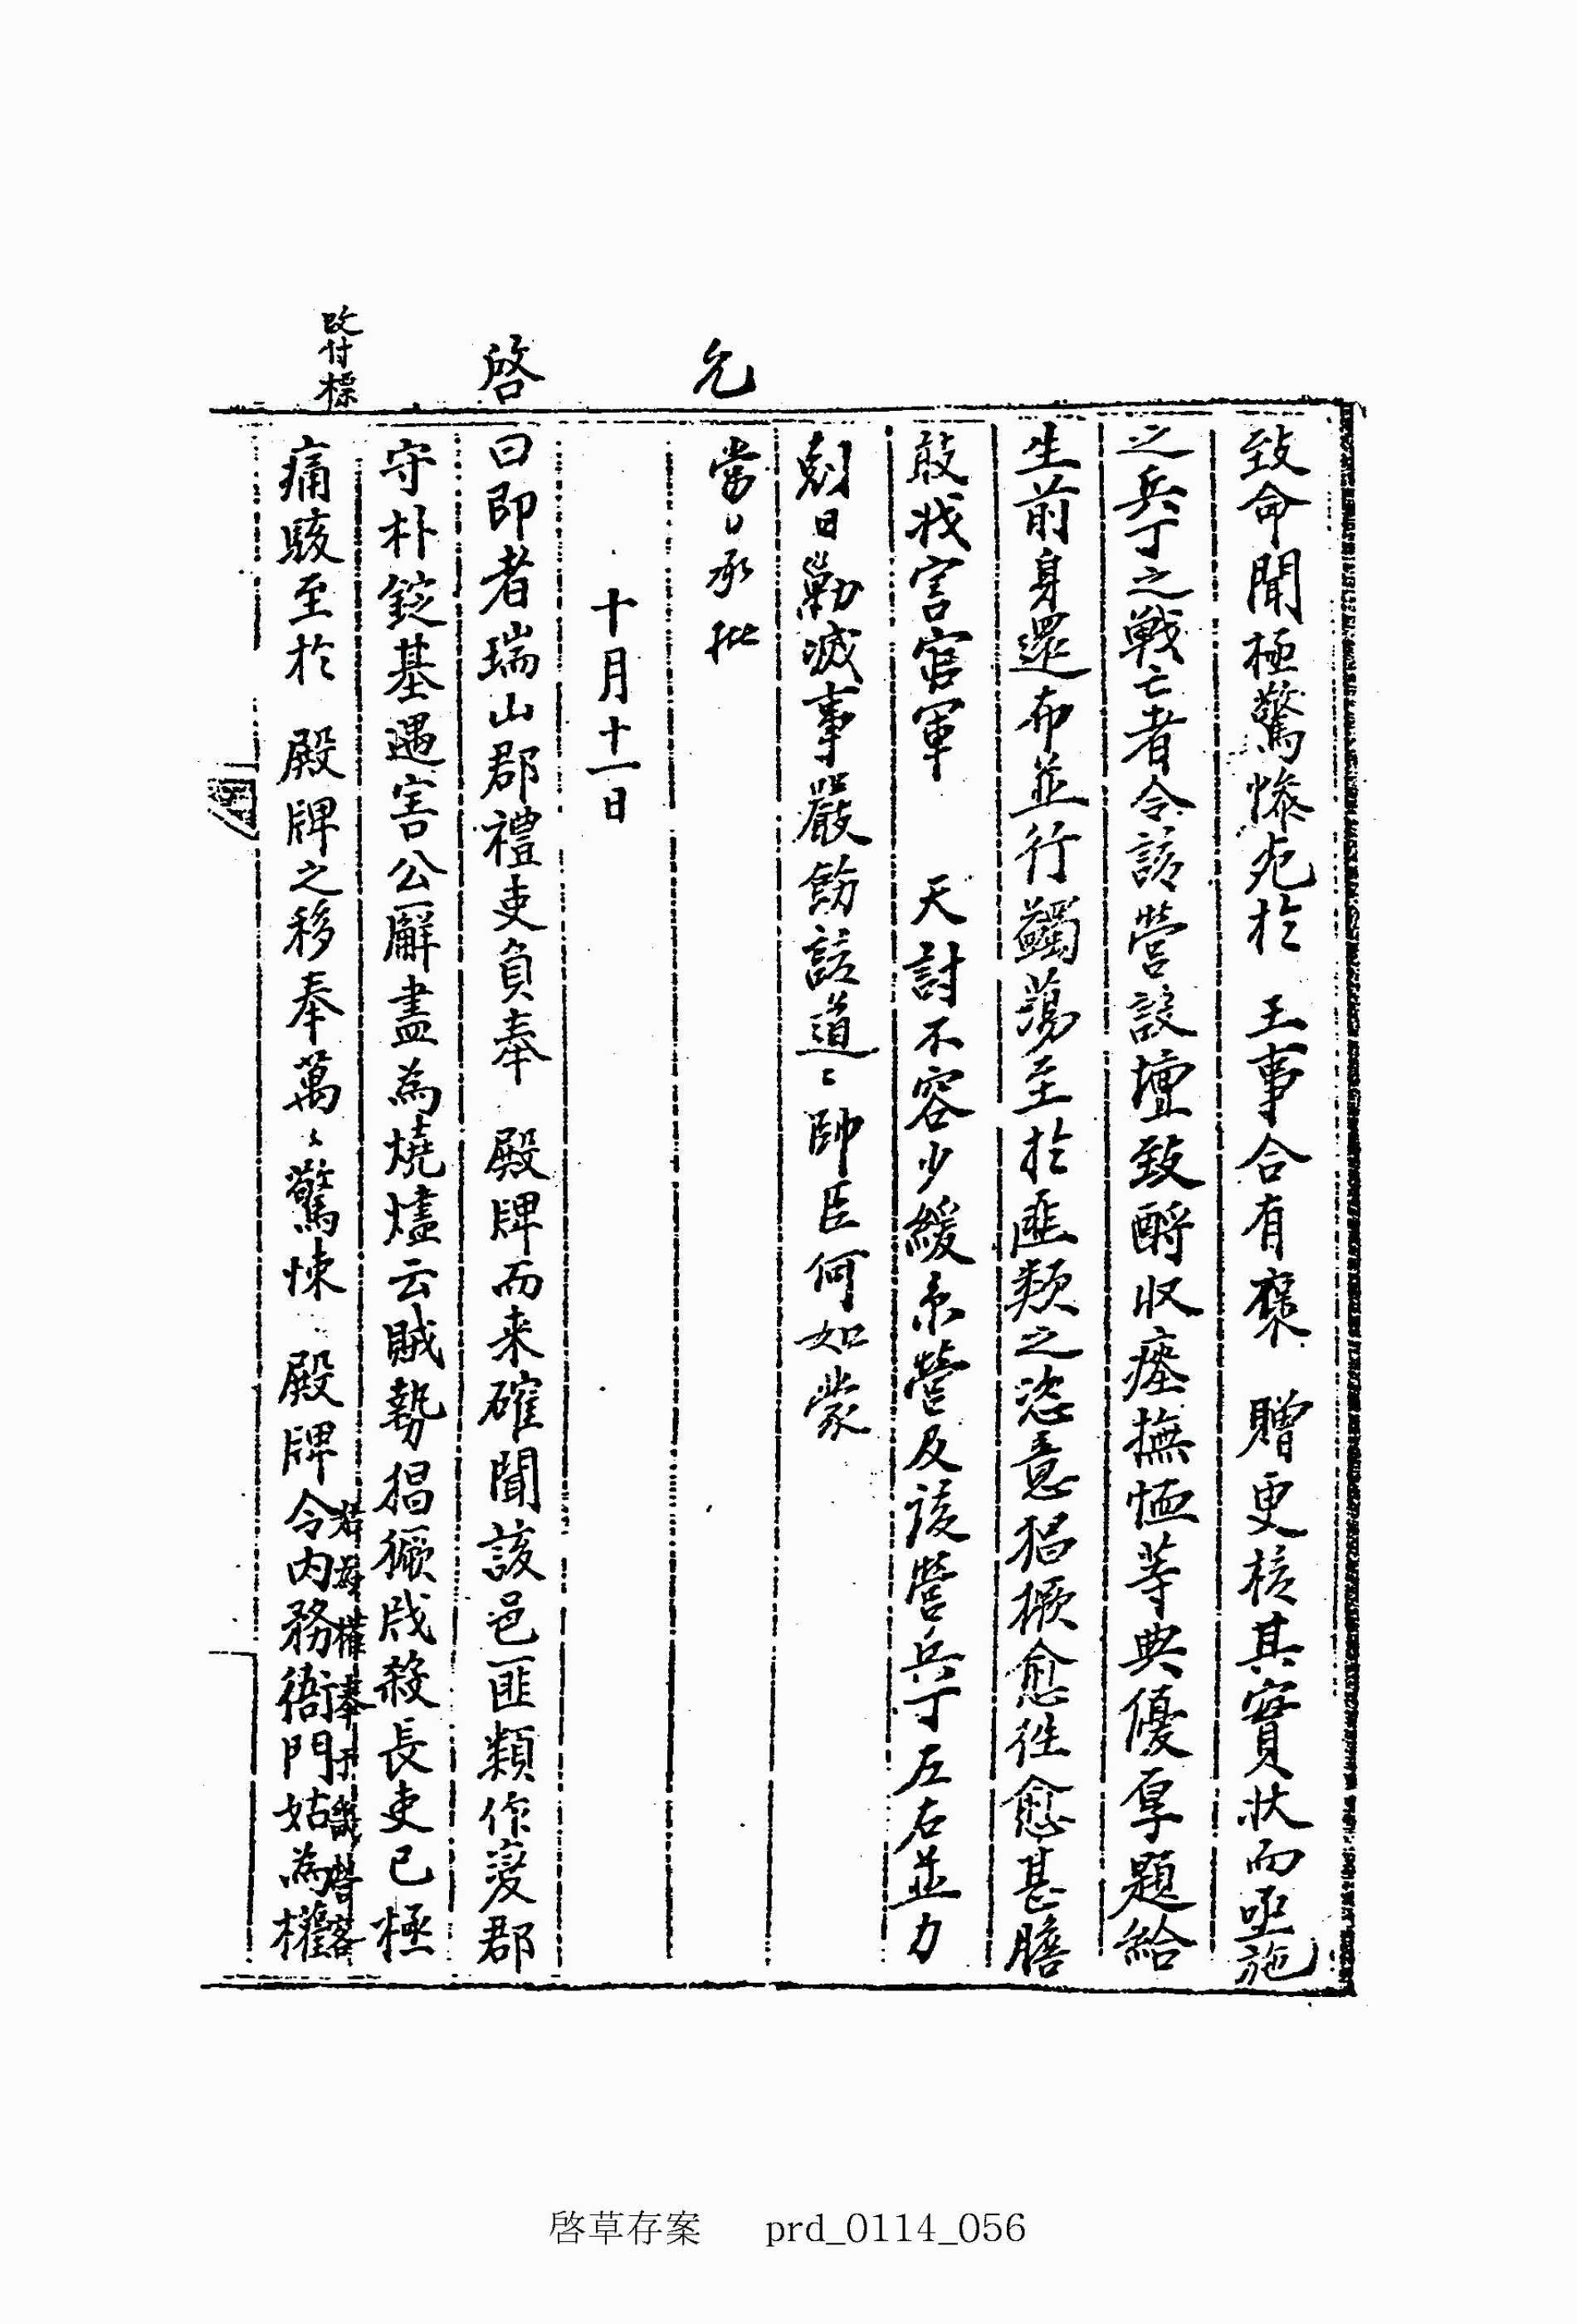 致命聞極驚慘死於 王事合有褒 贈更核其實狀而亟施
之兵丁之戰亡者令該營設壇致酹收瘞撫恤等典優厚題給
生前身還布並行蠲蕩至於匪類之恣意猖獗愈往愈甚膽
敢戕害官軍 天討不容少緩京營及該營兵丁左右並力
剋日勦滅事嚴飭該道〻帥臣何如蒙
允
當日承批
十月十一日
啓
曰卽者瑞山郡禮吏負奉 殿牌而来確聞該邑匪類作變郡
守朴錠基遇害公廨盡為燒燼云賊勢猖獗戕殺長吏已極
改付標
痛駭至於 殿牌之移奉萬〻驚悚 殿牌令内務衙門姑為權
啓草存案 prd_0114_056